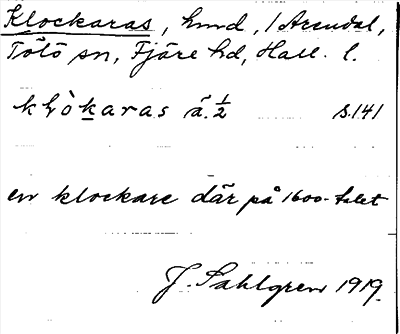 Klockaras, hmd, i Arendal,
Tölö sn, Fjäre hd, Hall. l.
klò̀karas ã. 1/2 s.141
en klockare där på 1600-talet
J. Sahlgren 1919.